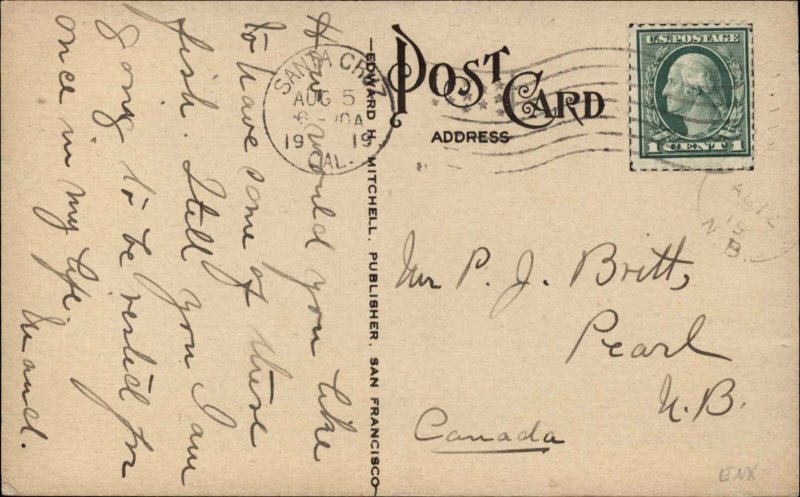 How would you like
to have some of these
fish. I tell you I am
going to be rested for
once in my life.
Maud.
EDWARD H. MITCHELL, PUBLISHER, SAN FRANCISCO
POST CARD
ADDRESS
SANTA CRUZ
AUG 5
1919
CAL.
U.S. POSTAGE
1 CENT 1
AU 12
19
N.B.
Mr P. J. Britt,
Pearl
N.B.
Canada
ENX